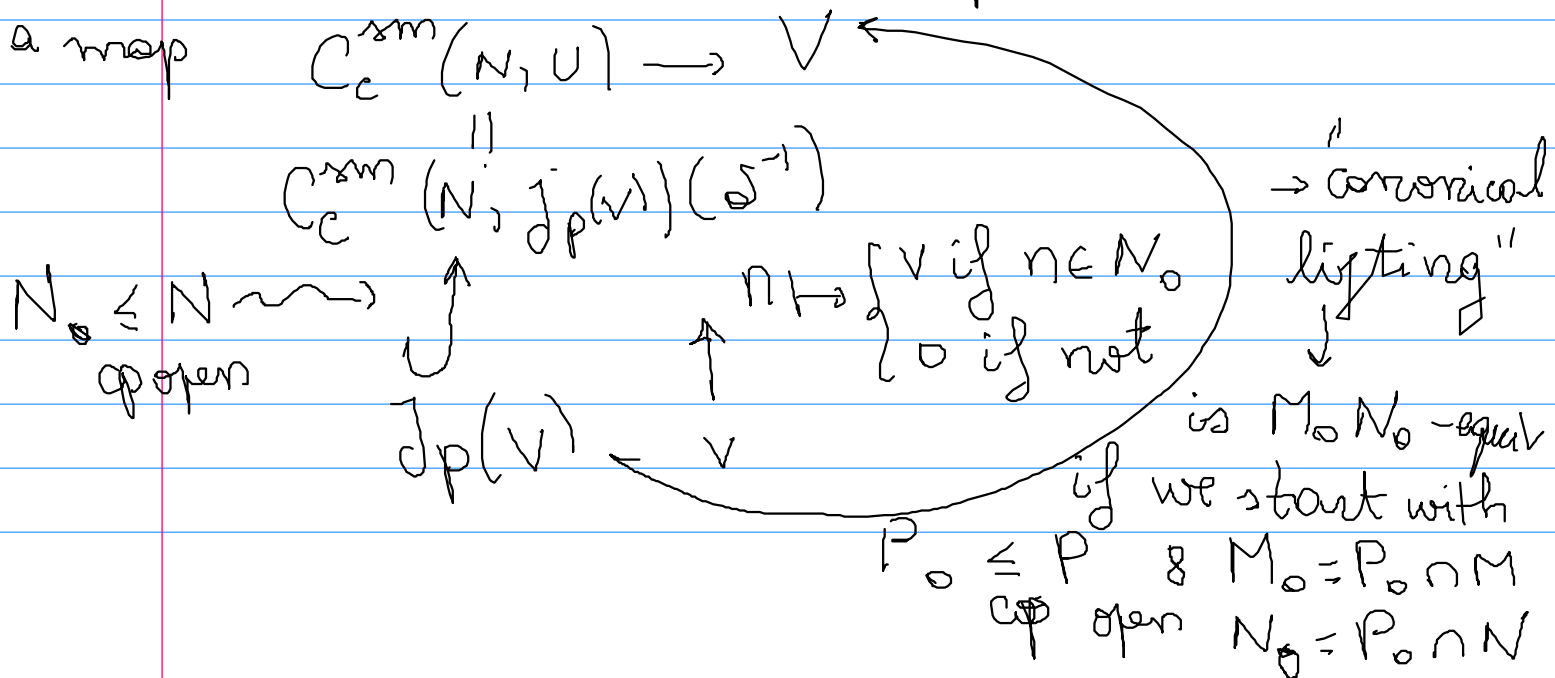 a map C_c^{sm}(N, U) → V
||
C_c^{sm}(N, J_P(V))(δ^{-1})
→ "canonical
lifting"
N_0 ≤ N ⇝
cp open
n ↦ { v if n ∈ N_0
0 if not
↑
J_P(V) v
↓
is M_0 N_0 -equiv
if we start with
P_0 ≤ P & M_0 = P_0 ∩ M
cp open N_0 = P_0 ∩ N